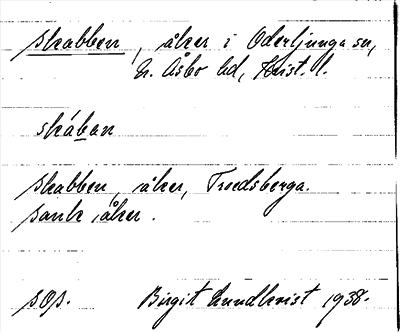 skabben, åker i Oderljunga sn,
N. Åsbo hd, Krist. l.
skában
skabben, åker, Troedsberga.
sank åker.
sOp. Birgit Lundkvist 1938.